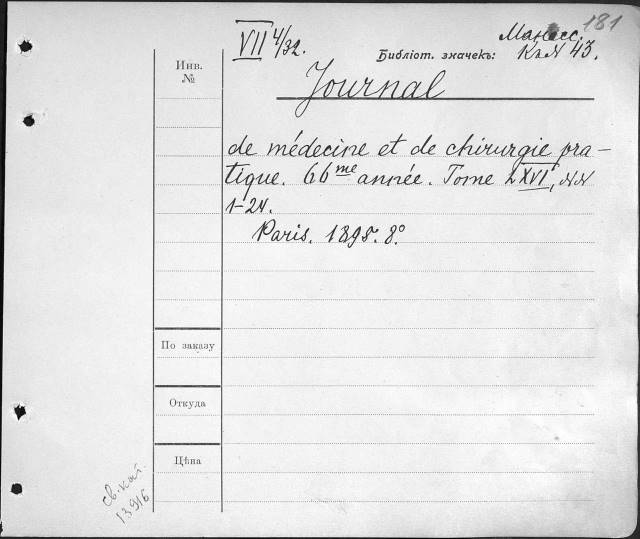 181
VII 4/32.
Манасс.
Библіот. значекъ: К. N 43.
Инв. №
Journal
de médecine et de chirurgie pra-
tique. 66me année. Tome LXVI, NN
1-24.
Paris. 1895. 8°.
По заказу
Откуда
Цѣна
св. кат.
13916